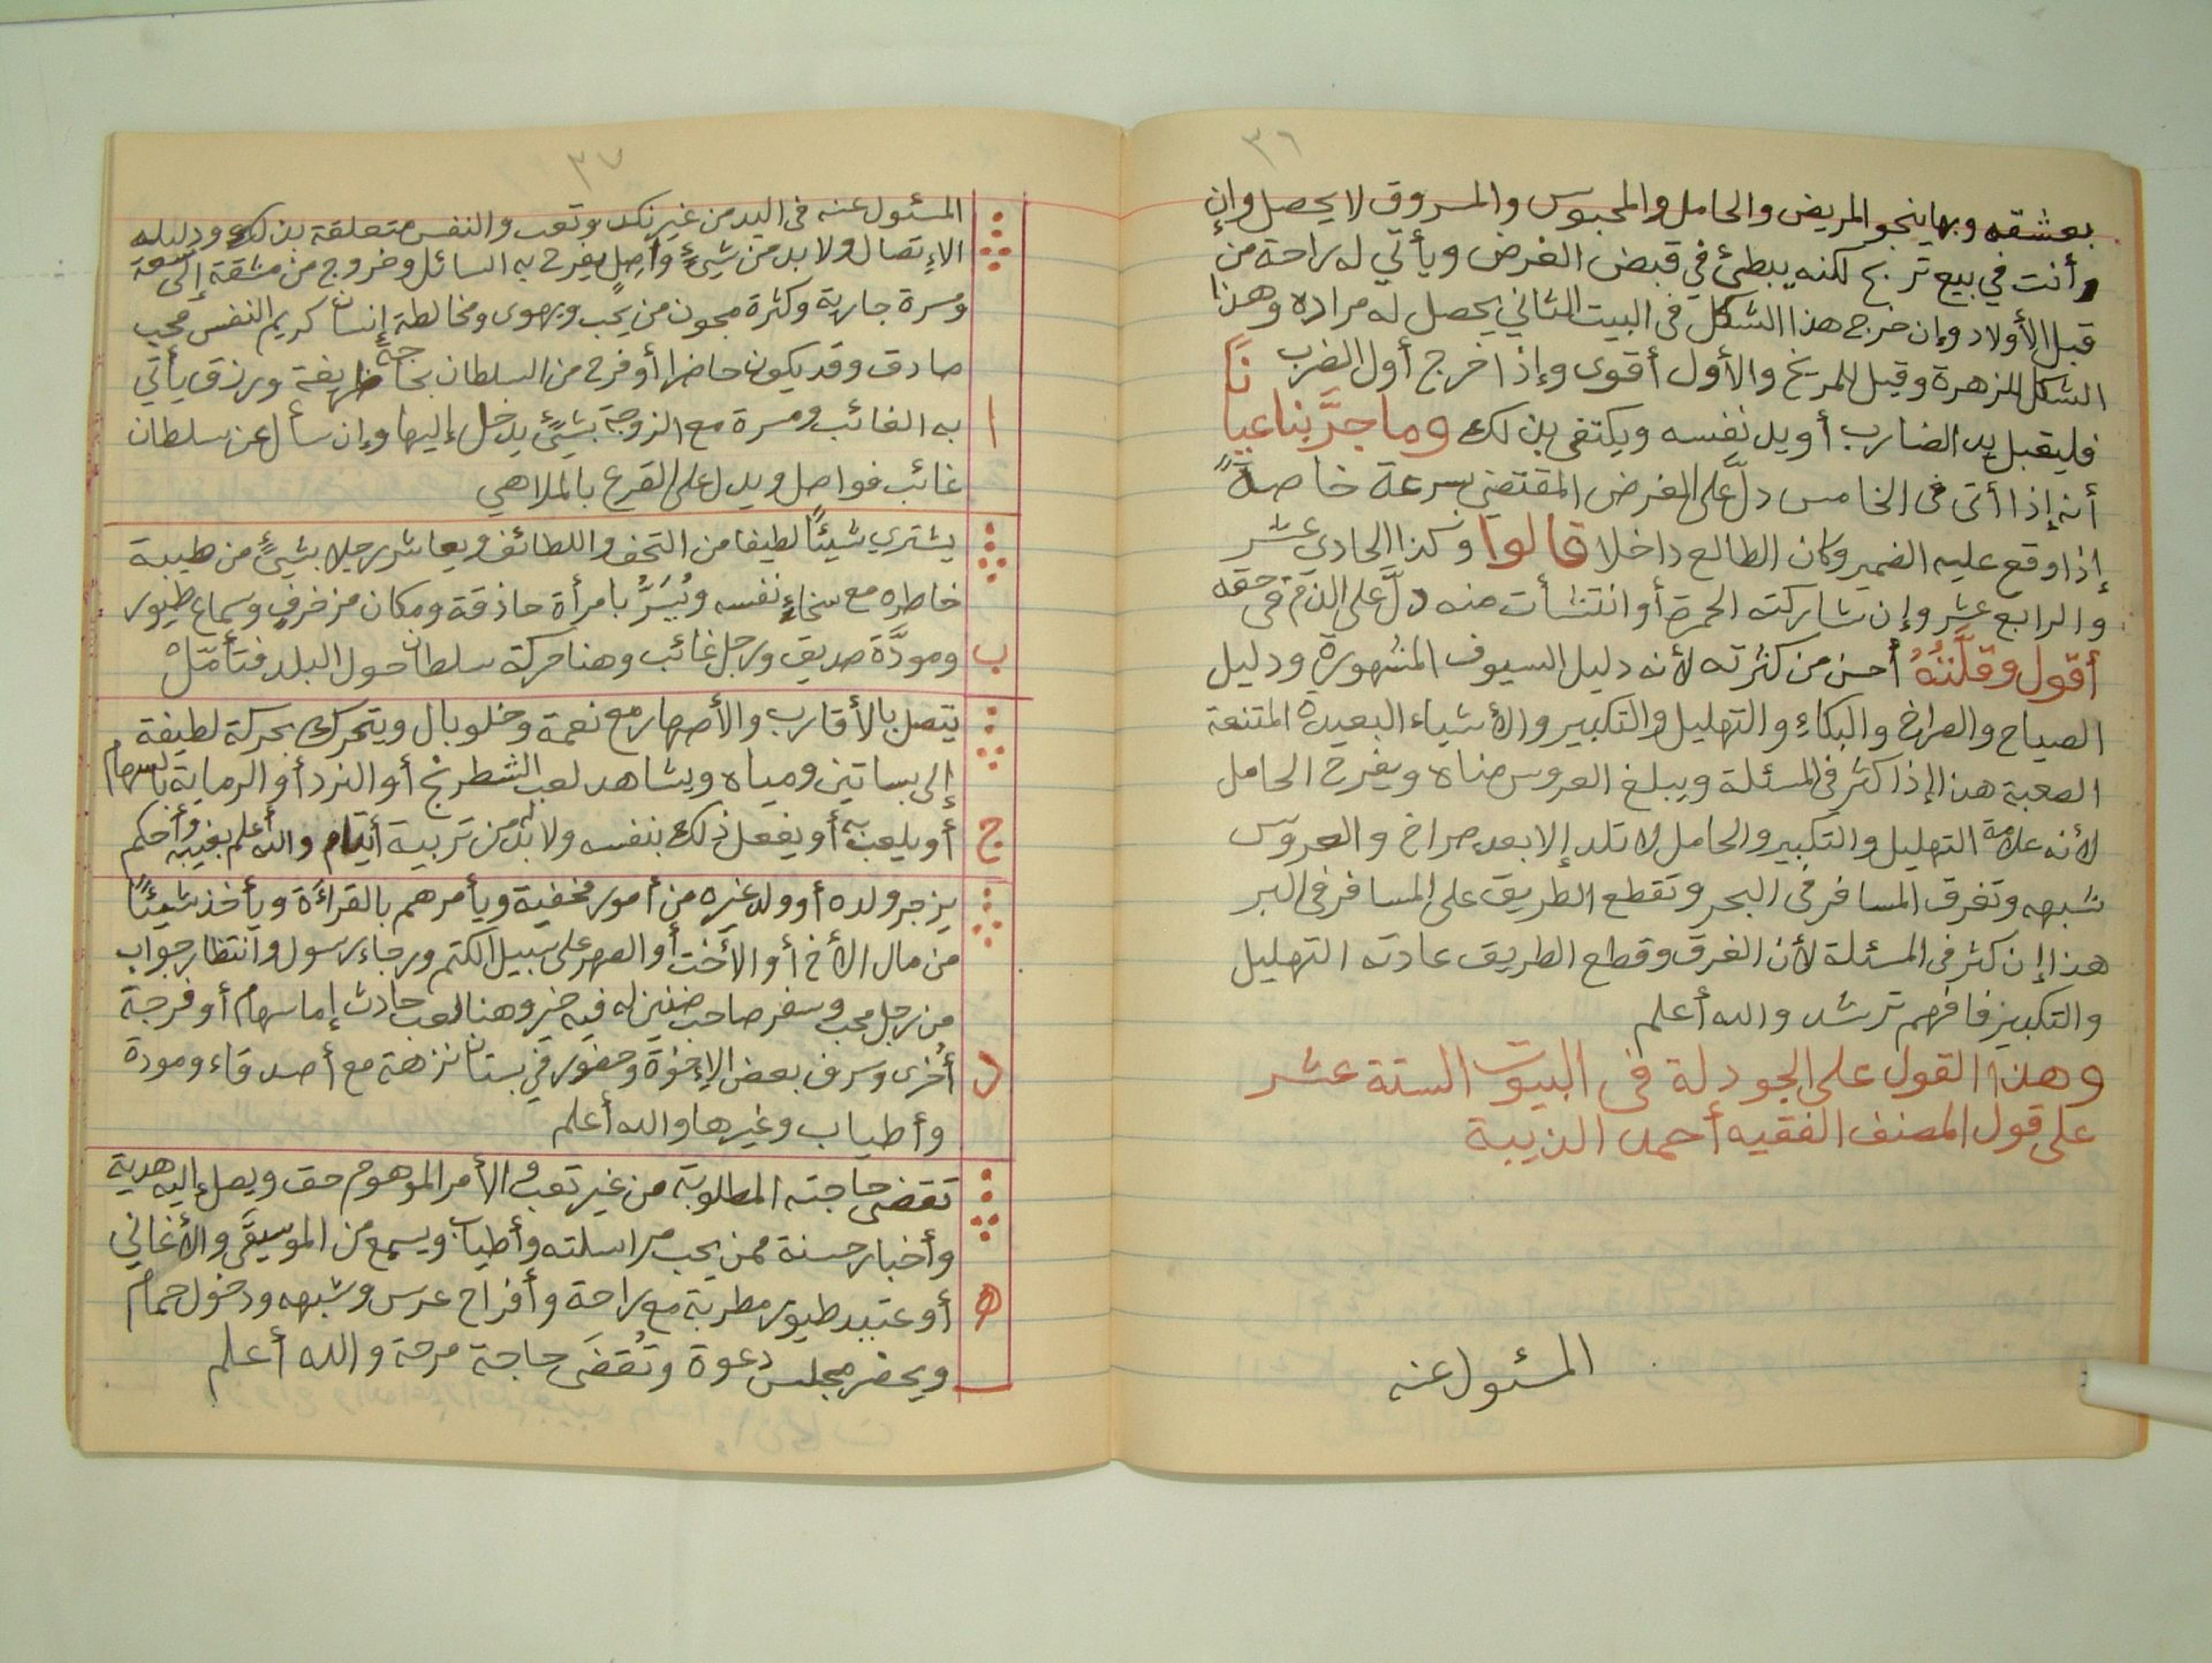 ٣٦
بعشقه وبها ينجو المريض والحامل والمحبوس والمسروق لا يحصل وإن
وأنت في بيع تربح لكنه يبطئ في قبض الغرض ويأتي له راحة من
قبل الأولاد وإن خرج هذا الشكل في البيت الثاني يحصل له مراده وهذا
الشكل للزهرة وقيل للمريخ والأول أقوى وإذا خرج أول الضرب
فليقبل يد الضارب أو يد نفسه ويكتفى بذلك وما جرَّبنا عيانًا
أنه إذا أتى في الخامس دلَّ على الغرض المقتضي بسرعة خاصةً
إذا وقع عليه الضمير وكان الطالع داخلا قالوا وكذا الحادي عشر
والرابع عشر وإن شاركته الحمرة أو انتشأت منه دلَّ على الذم في حقه
أقول وقلَّتُهُ أحسن من كثرته لأنه دليل السيوف المشهورة ودليل
الصياح والصراخ والبكاء والتهليل والتكبير والأشياء البعيدة المتنعة
الصعبة هذا إذا كثر في المسئلة ويبلغ العروس مناه ويفرح الحامل
لأنه علامة التهليل والتكبير والحامل لا تلد إلا بعد صراخ والعروس
شبهه وتغرق المسافر في البحر وتقطع الطريق على المسافر في البر
هذا إن كثر في المسئلة لأن الغرق وقطع الطريق عادته التهليل
والتكبير فافهم ترشد والله أعلم
وهذا القول على الجودلة في البيوت الستة عشر
على قول المصنف الفقيه أحمد الذيبة
المسئول عنه
٣٧
المسئول عنه في اليد من غير نكد وتعب والنفس متعلقة بذلك ودليله
الإتصال ولا بد من شيءٍ واصلٍ يفرح به السائل وخروج من مشقة إلى سعة
ومسرة جارية وكثرة مجون من يحب ويهوى ومخالطة إنسان كريم النفس محب
صادق وقد يكون حاضرا أو فرح من السلطان بحاجة ظريفة ورزق يأتي
ا به الغائب ومسرة مع الزوجة بشيءٍ يدخل إليها وإن سأل عن سلطان
غائب فواصل ويدل على القرع بالملاهي
يشتري شيئًا لطيفا من التحف واللطائف ويعاشر رجلا بشيءٍ من طيبة
خاطره مع سخاءِ نفسه ويُسَرُّ بامرأة حاذقة ومكان مزخرف وسماع طيور
ب ومودَّة صديق ورجل غائب وهنا حركة سلطان حول البلد فتأمّلْ
يتصل بالأقارب والأصهار مع نعمة وخلو بال ويتحرك بحركة لطيفة
إلى بساتين ومياه ويشاهد لعب الشطرنج أو النرد أو الرماية بالسهام
ج أو يلعب به أو يفعل ذلك بنفسه ولا بد له من تربية أيتام والله أعلم بغيبه وأحكم
يزجر ولده أو ولد غيره من أمور مخفية ويأمرهم بالقراءة ويأخذ شيئًا
من مال الأخ أو الأخت أو الصهر على سبيل الكتم ورجاء رسول وانتظار جواب
من رجل محب وسفر صاحب ضنين له فيه خير وهنا لعب حادث إما سهام أو فرجة
د أخرى وسرف بعض الإخوة وحضور في بستان نزهة مع أصدقاء ومودة
وأطياب وغيرها والله أعلم
تقضى حاجته المطلوبة من غير تعب والأمر الموهوم حق ويصل إليه هدية
وأخبار حسنة ممن يحب مراسلته وأطياب ويسمع من الموسيقَى والأغاني
ه أو عتيد طيور مطربة مع راحة وأفراح عرس وشبهه ودخول حمام
ويحضر مجلس دعوة وتُقضَى حاجة مرحة والله أعلم